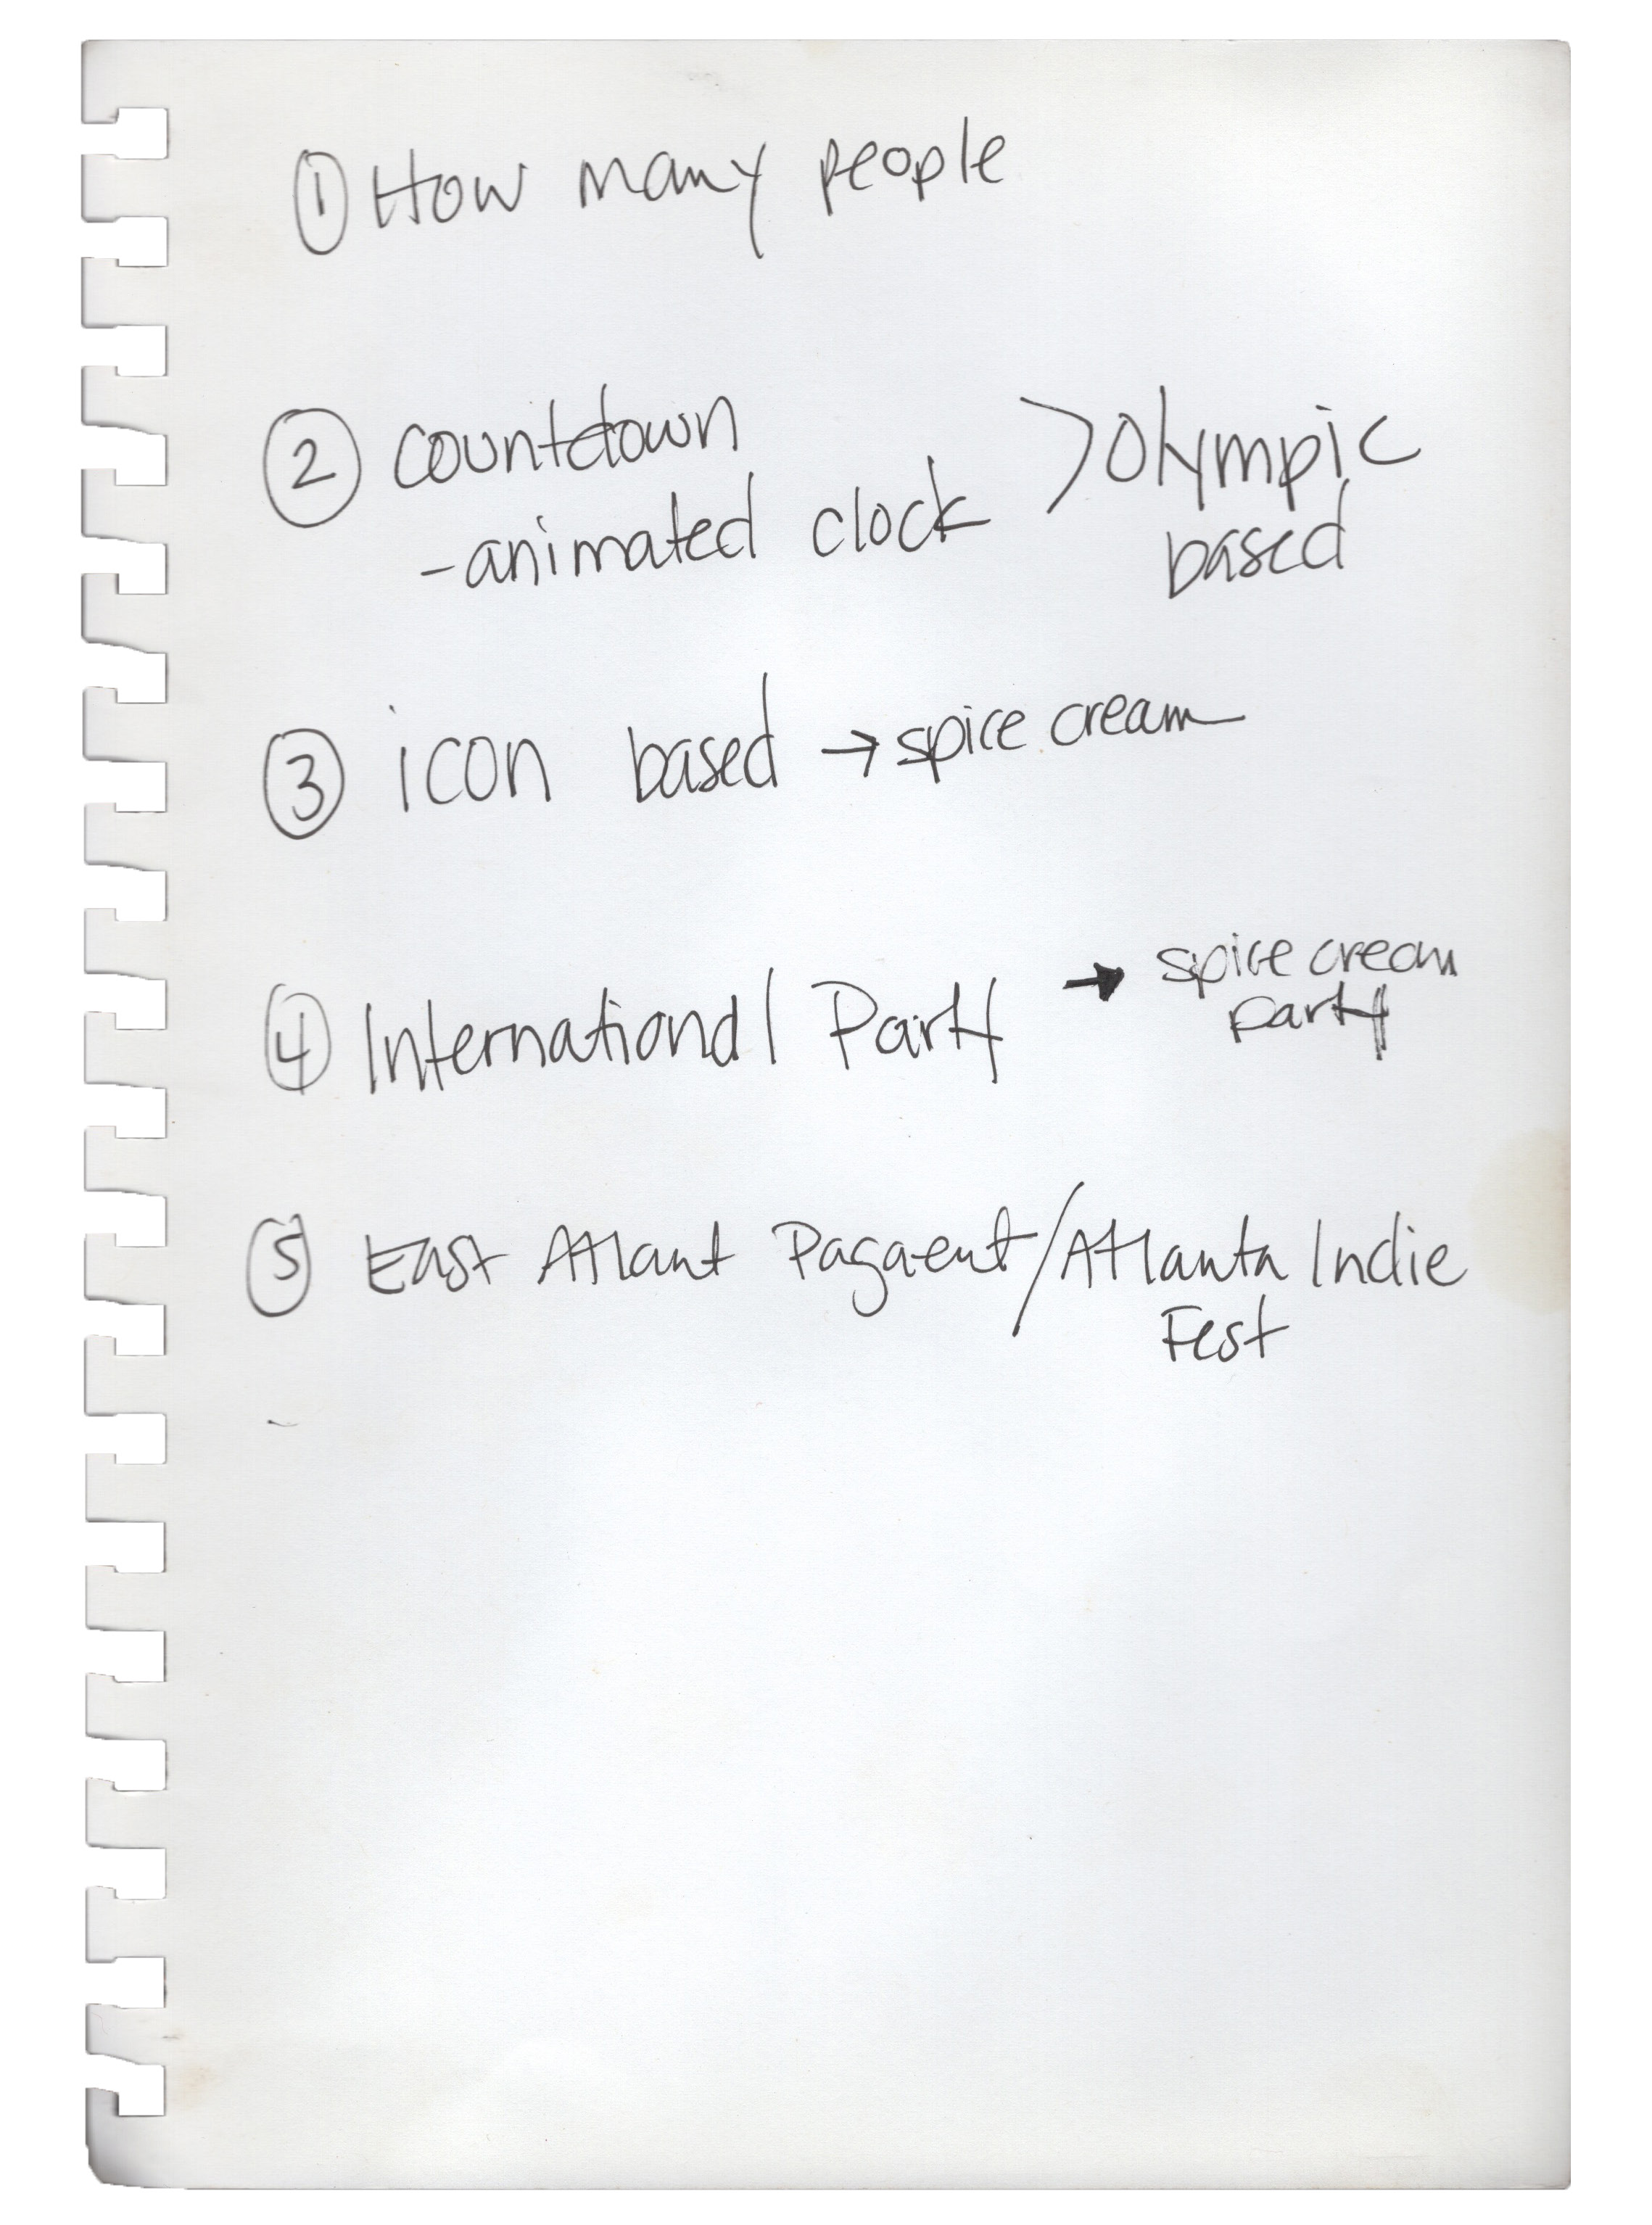 ① How many people
② countdown
-animated clock
>Olympic
based
③ icon based → spice cream
④ International Party → spice cream
party
⑤ East Atlant Pagaent/Atlanta Indie
Fest